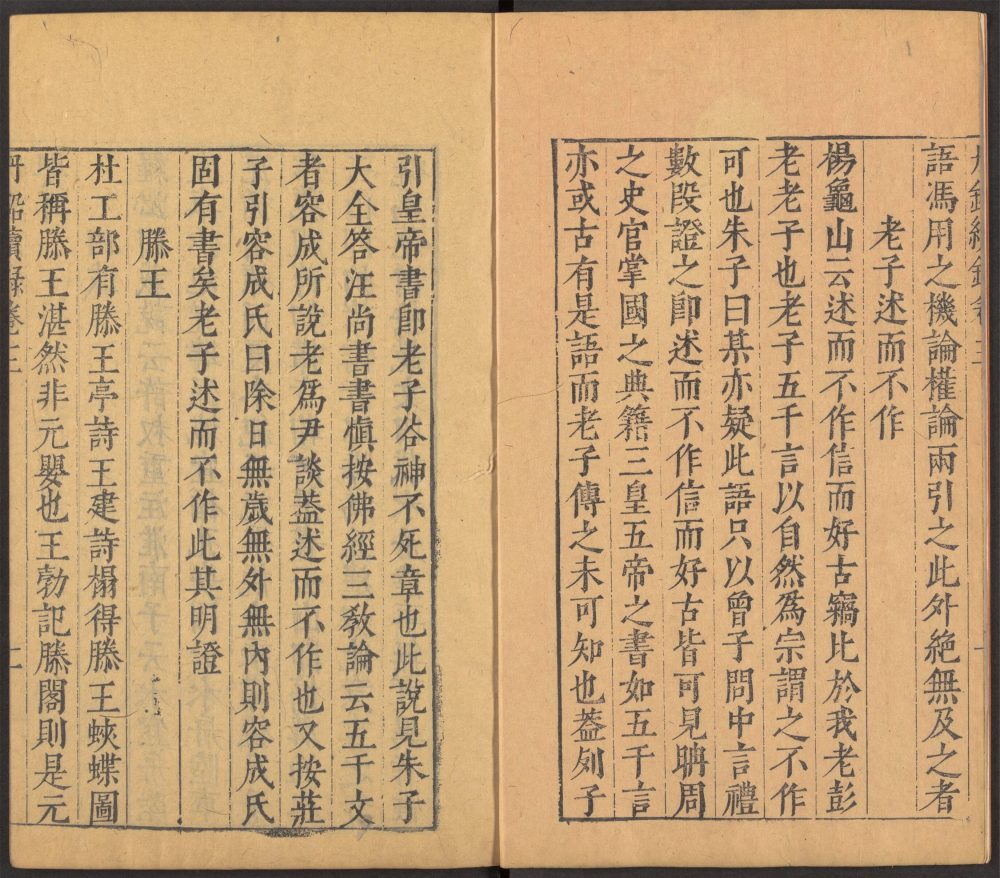 語馮用之機論權論兩引之此外絶無及之者
老子述而不作
楊龜山云述而不作信而好古竊比於我老彭
老老子也老子五千言以自然爲宗謂之不作
可也朱子曰某亦疑此語只以曾子問中言禮
數段證之卽述而不作信而好古皆可見聃周
之史官掌國之典籍三皇五帝之書如五千言
亦或古有是語而老子傳之未可知也葢列子
引皇帝書卽老子谷神不死章也此說見朱子
大全答汪尚書書愼按佛經三敎論云五千文
者容成所說老爲尹談葢述而不作也又按莊
子引容成氏曰除日無歲無外無內則容成氏
固有書矣老子述而不作此其明證
滕王
杜工部有滕王亭詩王建詩榻得滕王蛺蝶圖
皆稱滕王湛然非元嬰也王勃記滕閣則是元